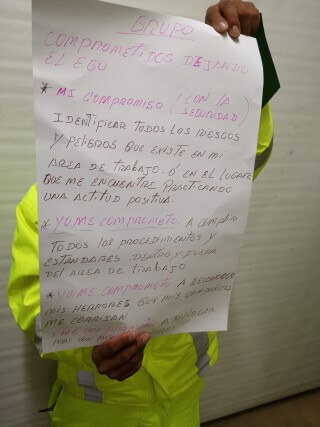 GRUPO
COMPROMETIDOS DEJANDO
EL EGO
* MI COMPROMISO (CON LA
SEGURIDAD)
IDENTIFICAR TODOS LOS RIESGOS
Y PELIGROS QUE EXISTE EN MI
AREA DE TRABAJO. Ó EN EL LUGAR
QUE ME ENCUENTRE PRACTICANDO
UNA ACTITUD POSITIVA.
* YO ME COMPROMETO A CUMPLIR
TODOS LOS PROCEDIMIENTOS Y
ESTANDARES DENTRO Y FUERA
DEL AREA DE TRABAJO
* YO ME COMPROMETO A RECONOCER
MIS HERRORES QUE MIS COMPAÑEROS
ME CORRIJAN